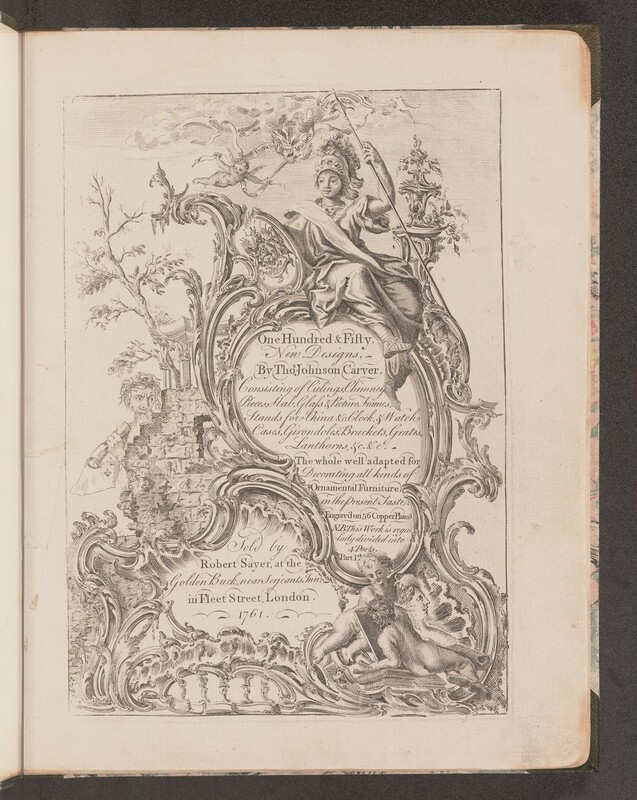 One Hundred & Fifty.
New Designs,
By Tho.s Johnson Carver.
Consisting of Cielings, Chimney
Pieces, Slab, Glass & Picture Frames,
Stands for China & Clock, & Watch
Cases, Girondoles, Brackets, Grates,
Lanthorns, &c. &c.
The whole well adapted for
Decorating all kinds of
Ornamental Furniture,
in the Present Taste.
Engrav'd on 56 Copper Plates
N.B. This Work is regu-
larly divided into
4 Parts.
Part 1st
Sold by
Robert Sayer, at the
Golden Buck, near Serjeants Inn
in Fleet Street, London.
1761.